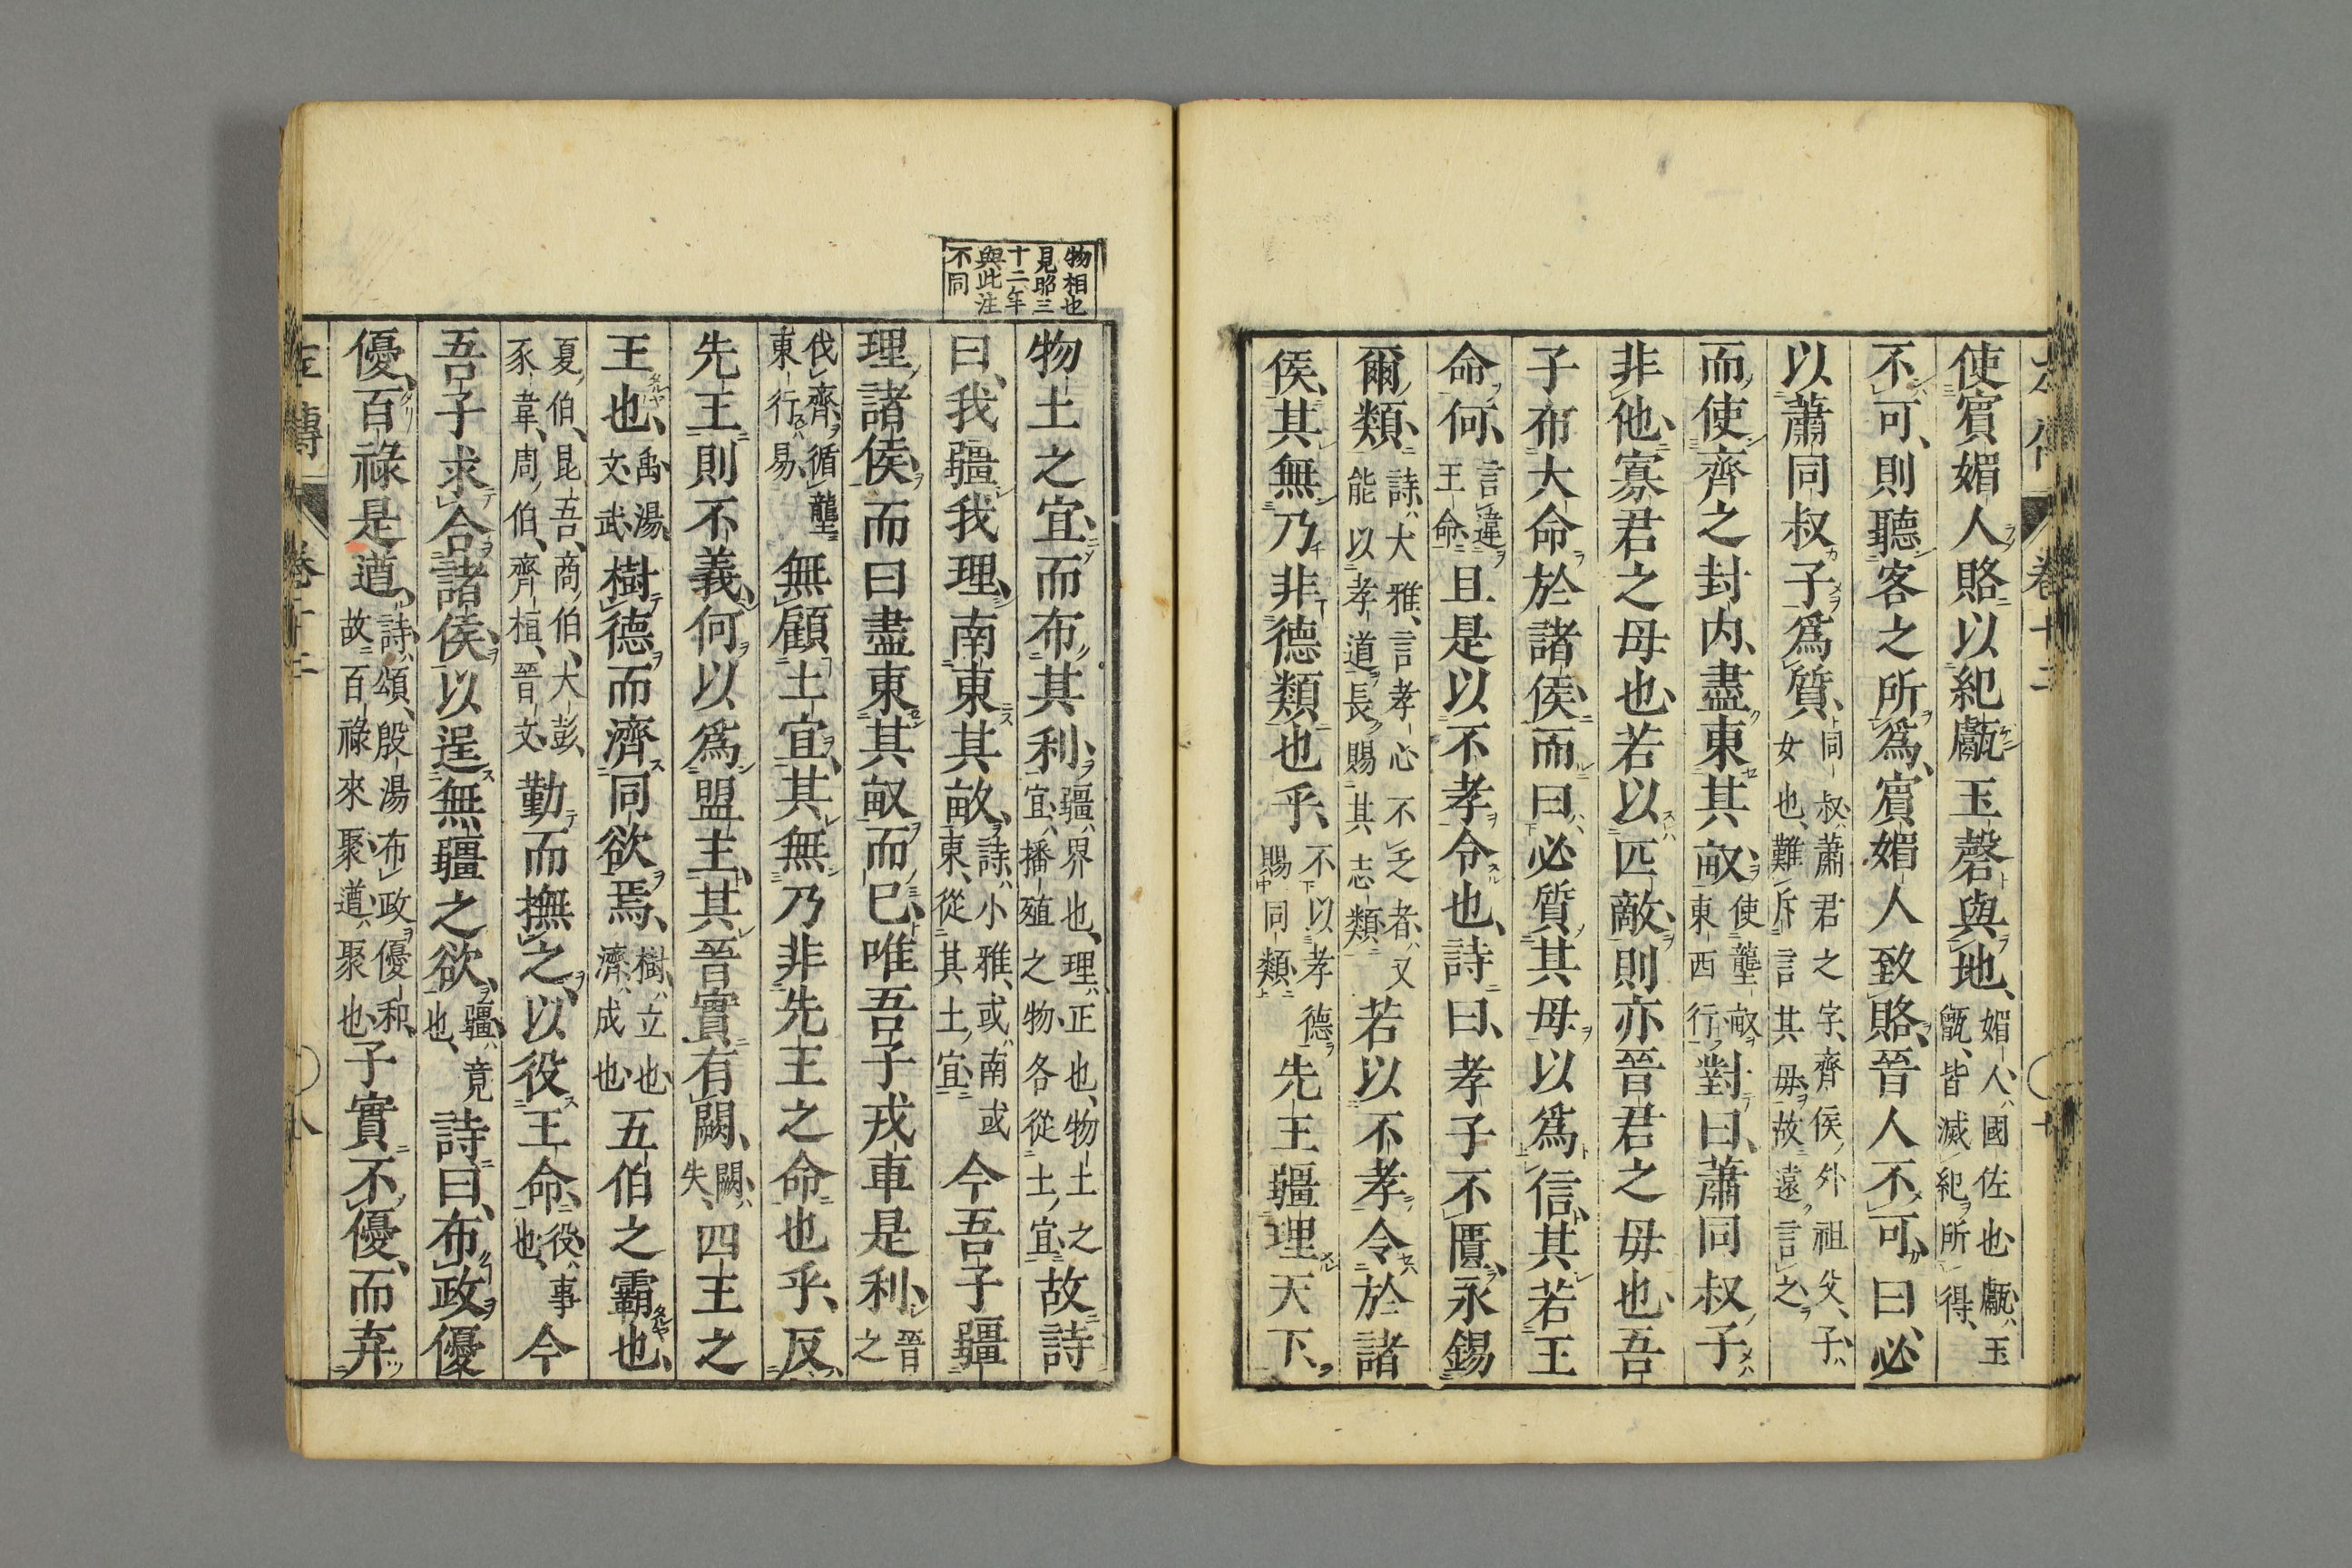 使賓媚人賂以紀甗玉磬與地媚人國佐也甗玉甑皆滅紀所得
不可則聽客之所爲賓媚人致賂晉人不可曰必
以蕭同叔子爲質同叔蕭君之字齊侯外祖父子女也難斥言其母故遠言之
而使齊之封内盡東其畝使壟畝東西行對曰蕭同叔子
非他寡君之母也若以匹敵則亦晉君之母也吾
子布大命於諸侯而曰必質其母以爲信其若王
命何言違王命且是以不孝令也詩曰孝子不匱永錫
爾類詩大雅言孝心不乏者又能以孝道長賜其志類若以不孝令於諸
侯其無乃非德類也乎不以孝德賜同類先王疆理天下
物相也
見昭三
十二年
與此注
不同
物土之宜而布其利疆界也理正也物土之宜播殖之物各從土宜故詩
曰我疆我理南東其畝詩小雅或南或東從其土宜今吾子疆
理諸侯而曰盡東其畝而已唯吾子戎車是利晉之
伐齊循壟東行易無顧土宜其無乃非先王之命也乎反
先王則不義何以爲盟主其晉實有闕闕失四王之
王也禹湯文武樹德而濟同欲焉樹立也濟成也五伯之霸也
夏伯昆吾商伯大彭豕韋周伯齊桓晉文勤而撫之以役王命役事也今
吾子求合諸侯以逞無疆之欲疆竟也詩曰布政優
優百祿是遒詩頌殷湯布政優和故百祿來聚遒聚也子實不優而弃
左傳 卷十二